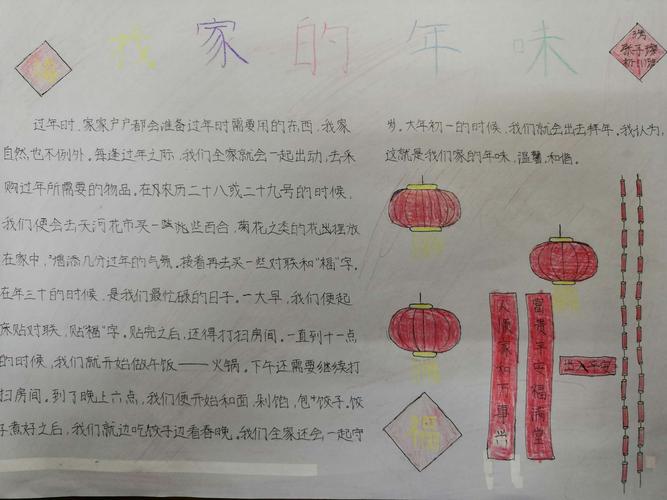 我家的年味
福
过年时，家家户户都会准备过年时需要用的东西，我家
自然也不例外。每逢过年之际，我们全家就会一起出动，去采
购过年所需要的物品。在农历二十八或二十九号的时候，
我们便会去天河花市买一些百合，菊花之类的花出摆放
在家中，增添几分过年的气氛。接着再去买一些对联和“福”字。
在年三十的时候，是我们最忙碌的日子。一大早，我们便起
床贴对联，贴“福”字。贴完之后，还得打扫房间。一直到十一点
的时候，我们就开始做午饭——火锅。下午还需要继续打
扫房间。到了晚上六点，我们便开始和面，剁馅，包饺子。饺
子煮好之后，我们就边吃饺子边看春晚。我们全家还会一起守
岁。大年初一的时候，我们就会出去拜年。我认为，
这就是我们家的年味，温馨，和谐。
富贵平安福满堂
大顺家和万事兴
出入平安
福